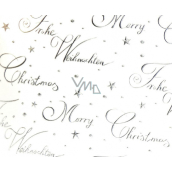 Frohe
Merry
Weihnachten
Christmas
Frohe
VMD
Merry
Weihnachten
Christmas
Frohe
Merry
Weihnachten